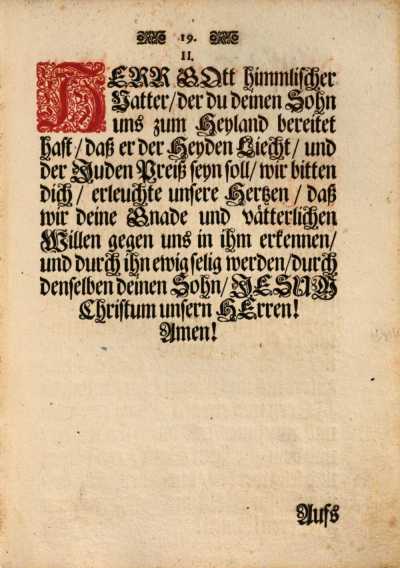 19.
II.
HERR GOtt himmlischer
Vatter/der du deinen Sohn
uns zum Heyland bereitet
hast/ daß er der Heyden Liecht/ und
der Juden Preiß seyn soll/ wir bitten
dich/ erleuchte unsere Hertzen/ daß
wir deine Gnade und vätterlichen
Willen gegen uns in ihm erkennen/
und durch ihn ewig selig werden/durch
denselben deinen Sohn/ JESUM
Christum unsern HErren!
Amen!
Aufs